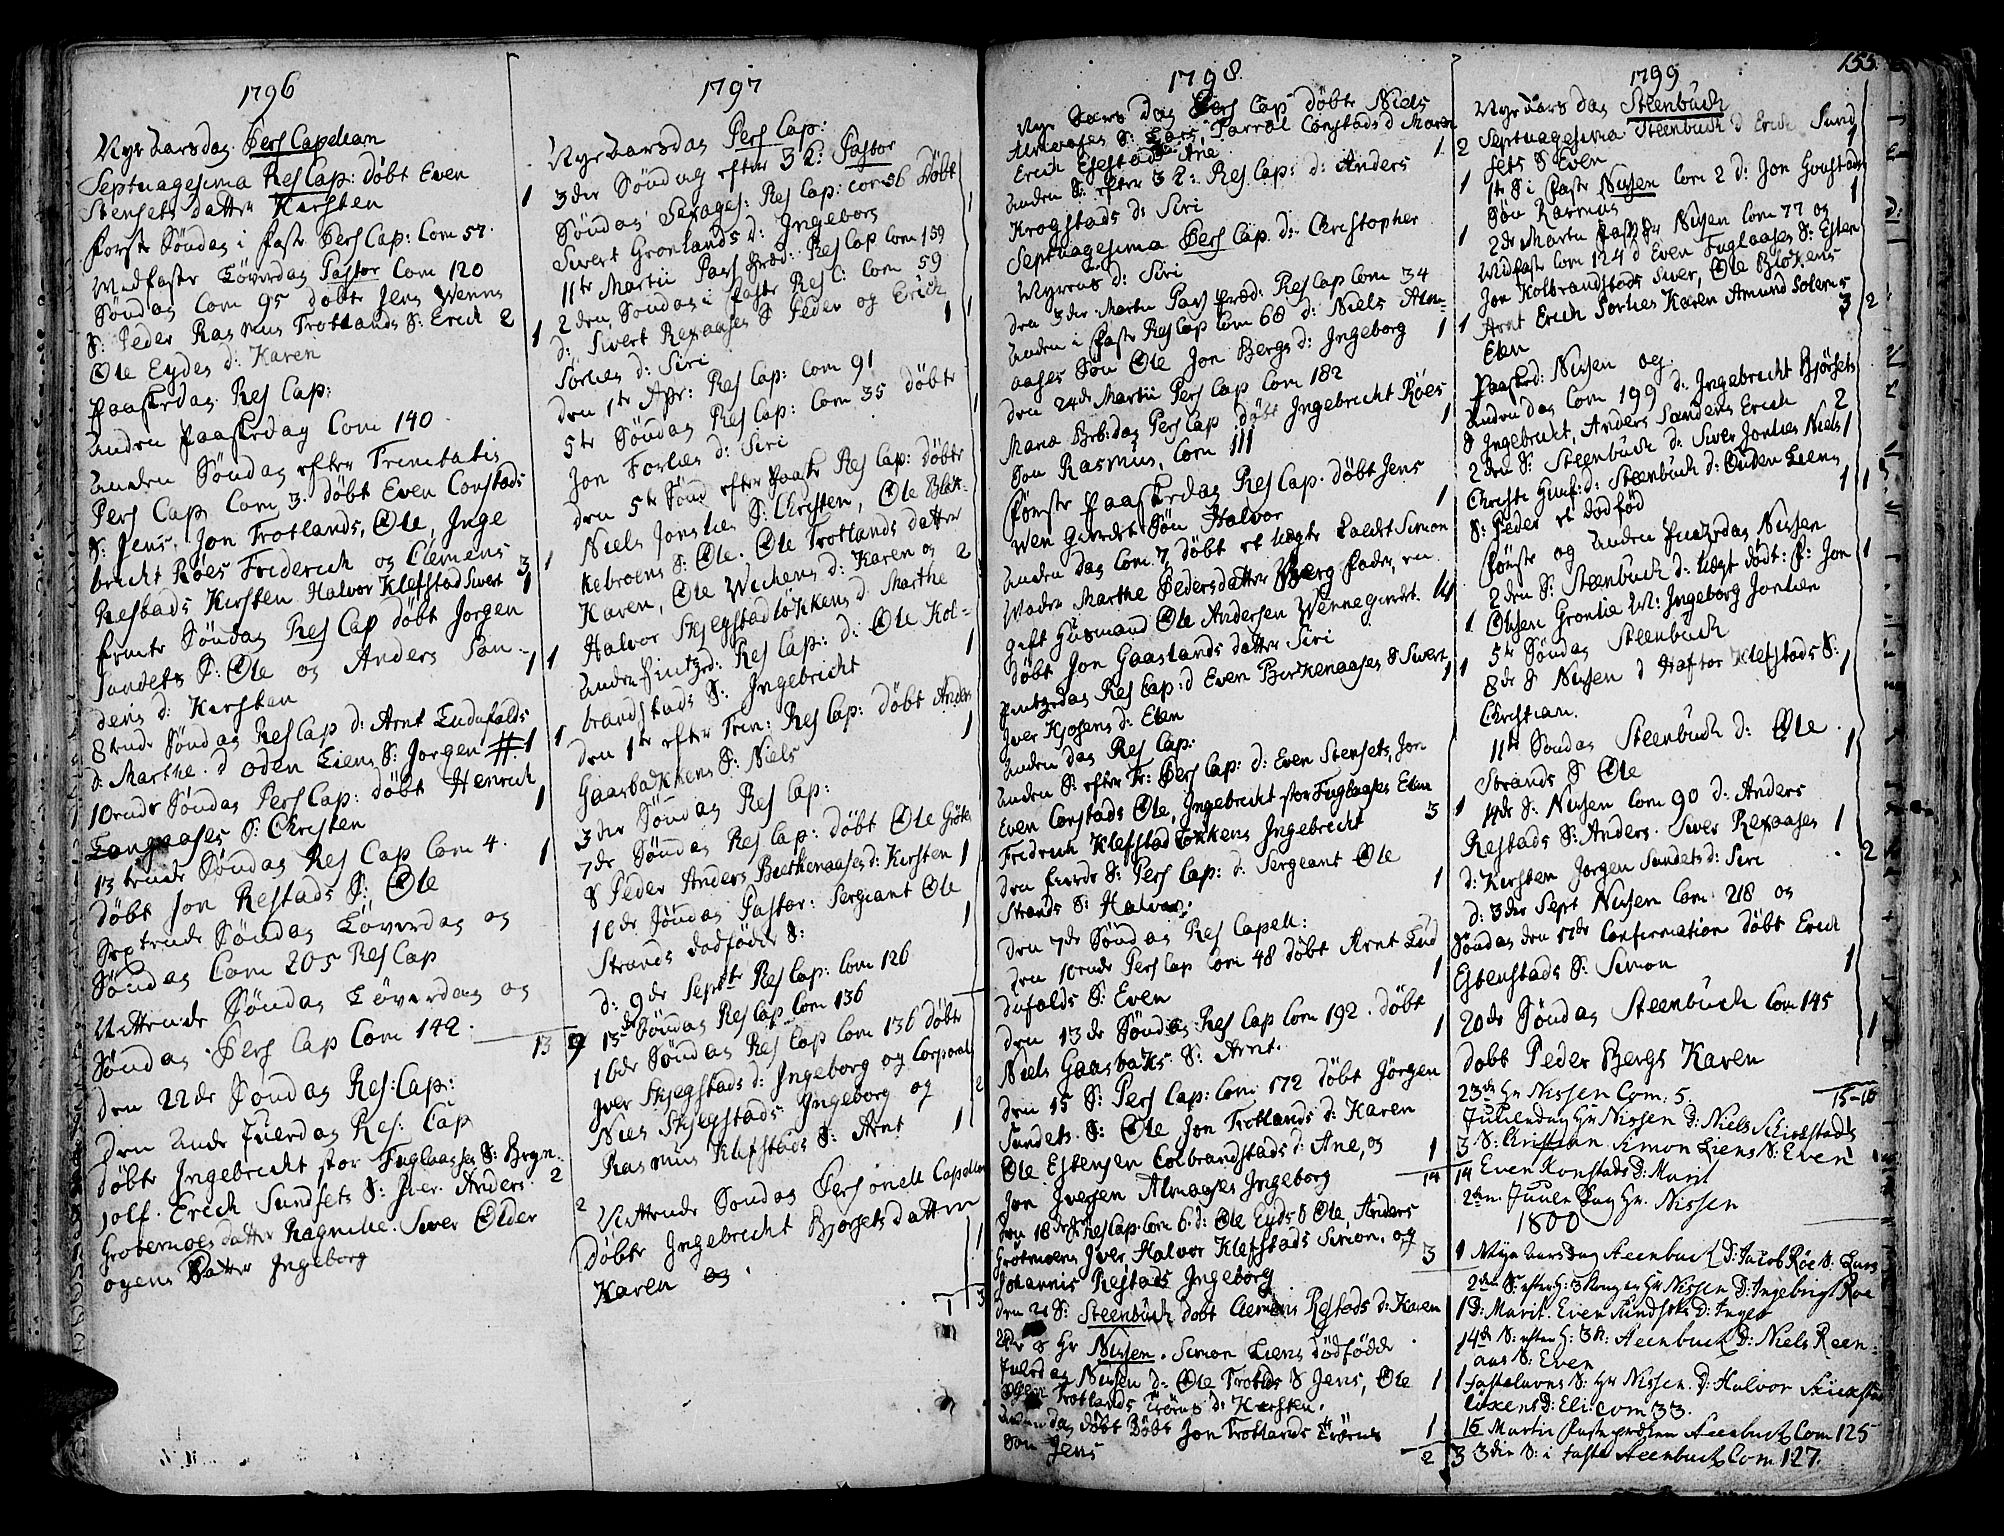 1796
Nyt Aarsdag Pers Capellam
Septuagesima Res Cap: døbt Even
Stensets datter Kirsten
første Søndag i faste Pers Cap: Com 57.
Midfaste Løverdag Pastor Com 120
Søndag Com 95 døbt Jens Wenns
S: Peder Rasmus Trotlands S: Erich 2
Ole Eydes d: Karen
Paaskedag Res Cap:
Anden Paaskedag Com 140
Anden Søndag efter Trinitatis
Pers Cap Com 3. døbt Even Constads
S: Jens, Jon Trotlands, Ole, Inge
bricht Røes Friderich og Clemens
Restads Kirsten Halvor Klefstad Swert 3
femte Søndag Res Cap døbt Jorgen 1
Sundets S: Ole og Anders San-
dens d: Kirsten 1
8tende Søndag Res Cap d: Arnt Lundufalds
d: Marthe. d Oden Liens S: Jorgen # 1
10ende Søndag Pers Cap: døbt Henrich
Langaases S: Christen 1
13tende Søndag Res Cap Com 4.
døbt Jon Restads S: Ole 1
Sextende Søndag Løverdag og
Søndag Com 205 Res Cap
Nittende Søndag Løverdag og
Søndag Pers Cap Com 142. 13 9
den 22de Søndag Res: Cap:
den Anden Juledag Res: Cap
døbt Ingebricht stor Fuglaases S: Bryn-
jolf. Erich Sundsets S: Iver. Anders 2
Grotemoes datter Ragnille. Swer Older
øyens Datter Ingeborg
1797
Nyt Aarsdag Pers Cap:
3der Søndag efter 3 K: Pastor
1 Søndag Sexages: Res Cap: com 56 Døbt
Swert Gronlands d: Ingeborg 1
11te Martii Pass præd: Res Cap Com 159
2den Søndag i faste Res C: Com 59
1 d: Swert Rexaases S Peder og Erich
Sørlies d: Siri 1
den 1te Apr: Res Cap: Com 91
5te Søndag Res Cap: Com 35 døbt
Jon Forlies d: Siri
den 5te Sønd efter Paaske Res Cap: døbt
Niels Jonslies S: Christen, Ole Blek-
1 kebroens S: Ole. Ole Trotlands datter
Karen, Ole Wichens d: Karen og 2
Halvor Skjegstadløkkens d: Marthe
1 Anden Pintzed: Res Cap: d: Ole Kol-
brandstads S: Ingebricht 1
1 den 1te efter Trin: Res Cap: døbt Anders
Gaarbakkens S: Niels 1
3der Søndag Res Cap:
7de Søndag Res Cap: døbt Ole Grøte
S Peder Anders Birthenaases d: Kirsten 1
10de Søndag Pastor: Sergiant Ole
Strands dødfødde S: 1
d: 9de Septbr Res Cap: Com 126
13de Søndag Res Cap Com 136
16de Søndag Res Cap Com 136 døbt
Iver Skjegstads d: Ingeborg og Corporal
Niels Skjegstads Ingeborg og 2
Rasmus Klefstads S: Arnt 1
2 Nittende Søndag Personell Capellan
døbt Ingebricht Bjorsets datter
Karen og. 1
1 3
1798.
Nyt Aars Dag Pers Cap døbt Niels
Almaases S: Lars. Parral Constads d Maren
Erich Elstads Ane 1
Anden S: efter 3 K: Res Cap: d: Anders
Krogstads d: Siri
Septuagesima Pers Cap. d: Christopher
Myrens d: Siri
den 3der Martii Pass præd: Res Cap Com 34
Anden i faste Res Cap Com 68 d: Niels Alm-
aases Søn Ole Jon Bergs d: Ingeborg 1
den 24de Martii Pers Cap Com 182
Mariæ Beb: dag Pers Cap døbt Ingebricht Røes
Søn Rasmus, Com 111 1
første Paaskedag Res Cap. døbt Jens
Wen Gierdt Søn Halvor 1
Anden dag Com. 7 døbt et uegte kaldt Simon
Moder Marthe Pedersdatter Berg fader, en
gift Huusmand Ole Andersen Wennegierdt.
døbt Jon Gaaslands datter Siri
Pintzedag Res Cap: d Even Birkenaases S Swert
Iver Kjosens d: Elen 1
Anden dag Res Cap:
Anden S: efter Tr: Pers Cap: d: Even Stensets, Jon
Even Constads Ole, Ingebricht stor Fuglaases Elen
Fredrich Klefstad løkkens Ingebricht 3
den fierde S: Pers Cap: d: Sergeant Ole
Strands S: Halvar; 1
den 7de Søndag Res Capell:
den 10ende Pers Cap Com 48 døbt Arnt Lund
dufalds S: Even 1
den 13de Søndag Res Cap Com 192. døbt
Niels Gaasbaks S: Arnt. 1
den 15 S: Pers Cap: Com: 172 døbt Jørgen
Sundets S: Ole Jon Trotlands d: Karen
Ole Estensen Colbrandstads d: Ane, og 1
Jon Iversen Almaases Ingeborg 14
den 18de Res Cap: Com 6. d: Ole Eyds S Ole, Anders
Grotmoens Iver Halvor Klefstads Simon, og
Johannis Restads Ingeborg 3
den 21 S: Steenbuch døbt Clemens Restads d: Karen
S Hr Nissen. Simon Liens dødfødde
Juledag Nissen d: Ole Trotlds S Jens, Ole 1
Trotlands Trøens d: Kirsten.
Anden dag døbt Jon Trotlands Trøens 1
Søn Jens 2
155.
1799
Nyt Aars dag Steenbuch
2 Septuagesima Steenbuch d Erich Sund
sets S Even 1
1 1te S i faste Nissen Com 2 d: Jon Gunstads
Søn Rasmus 1
1 2de Martii Passpr Nissen Com 77 og
Midfaste Com 124 d Even Fuglaases S: Esten
Jon Kolbrandstads Swer, Ole Blokens
1 Arnt Erich Sorlies Karen Amund Solems 3 2
Elen
Paasked: Nissen og
Anden dag Com 199 d: Ingebricht Bjørsets
S Ingebricht, Anders Sandens Erich 2
2den S: Steenbuch d: Swer Jonlies Niels 1
Christi Himf: d: Steenbuch d: Ouden Liens
S: Peder et dødfød 1 1
første og Anden Pintzedag Nissen
2den S: Steenbuch d: uegt døbt: F: Jon 1
1 Olsen Gronlie M: Ingeborg Jonlien
5te Søndag Steenbuch
1 8de S Nissen d Haftor Klefstads S:
Christian. 1
11te Søndag Steenbuch d: Ole
Strands S Ole 1
1 14de S: Nissen Com 90 d: Anders
Restads S: Anders. Swer Rexaases 1
d: Kirsten Jorgen Sundets d: Siri 2
d: 3der Sept Nissen Com: 218 og
Søndag den 17de Confirmation døbt Erich
Estenstads S: Simon 1
20de Søndag Steenbuch Com 145
døbt Peder Bergs Karen 1
23de Hr Nissen Com: 5. 15-10
Juuledag Hr Nissen D: Niels Schiokstads
3 S: Christian Simon Liens S: Even
14 Even Konstads D: Marit
2den Juule Dag Hr. Nissen
1800
1 Nyt Aarsdag Steenbuch D: Jacob Røe S: Lars
2den S: efter H: 3 Konger Hr Nissen D: Ingebrigt Roe
1 D: Marit. Even Sundsets D: Inger
14de S: efter H: 3 K: Steenbuch D: Niels Reen-
aas S: Even
1 Fastelavns S: Hr Nissen. D: Halvor Skiekstad
løkens D: Eli Com 33.
15 Martii Fasteprædken Steenbuch Com 125
3 3die S: i Faste Steenbuch Com: 127.